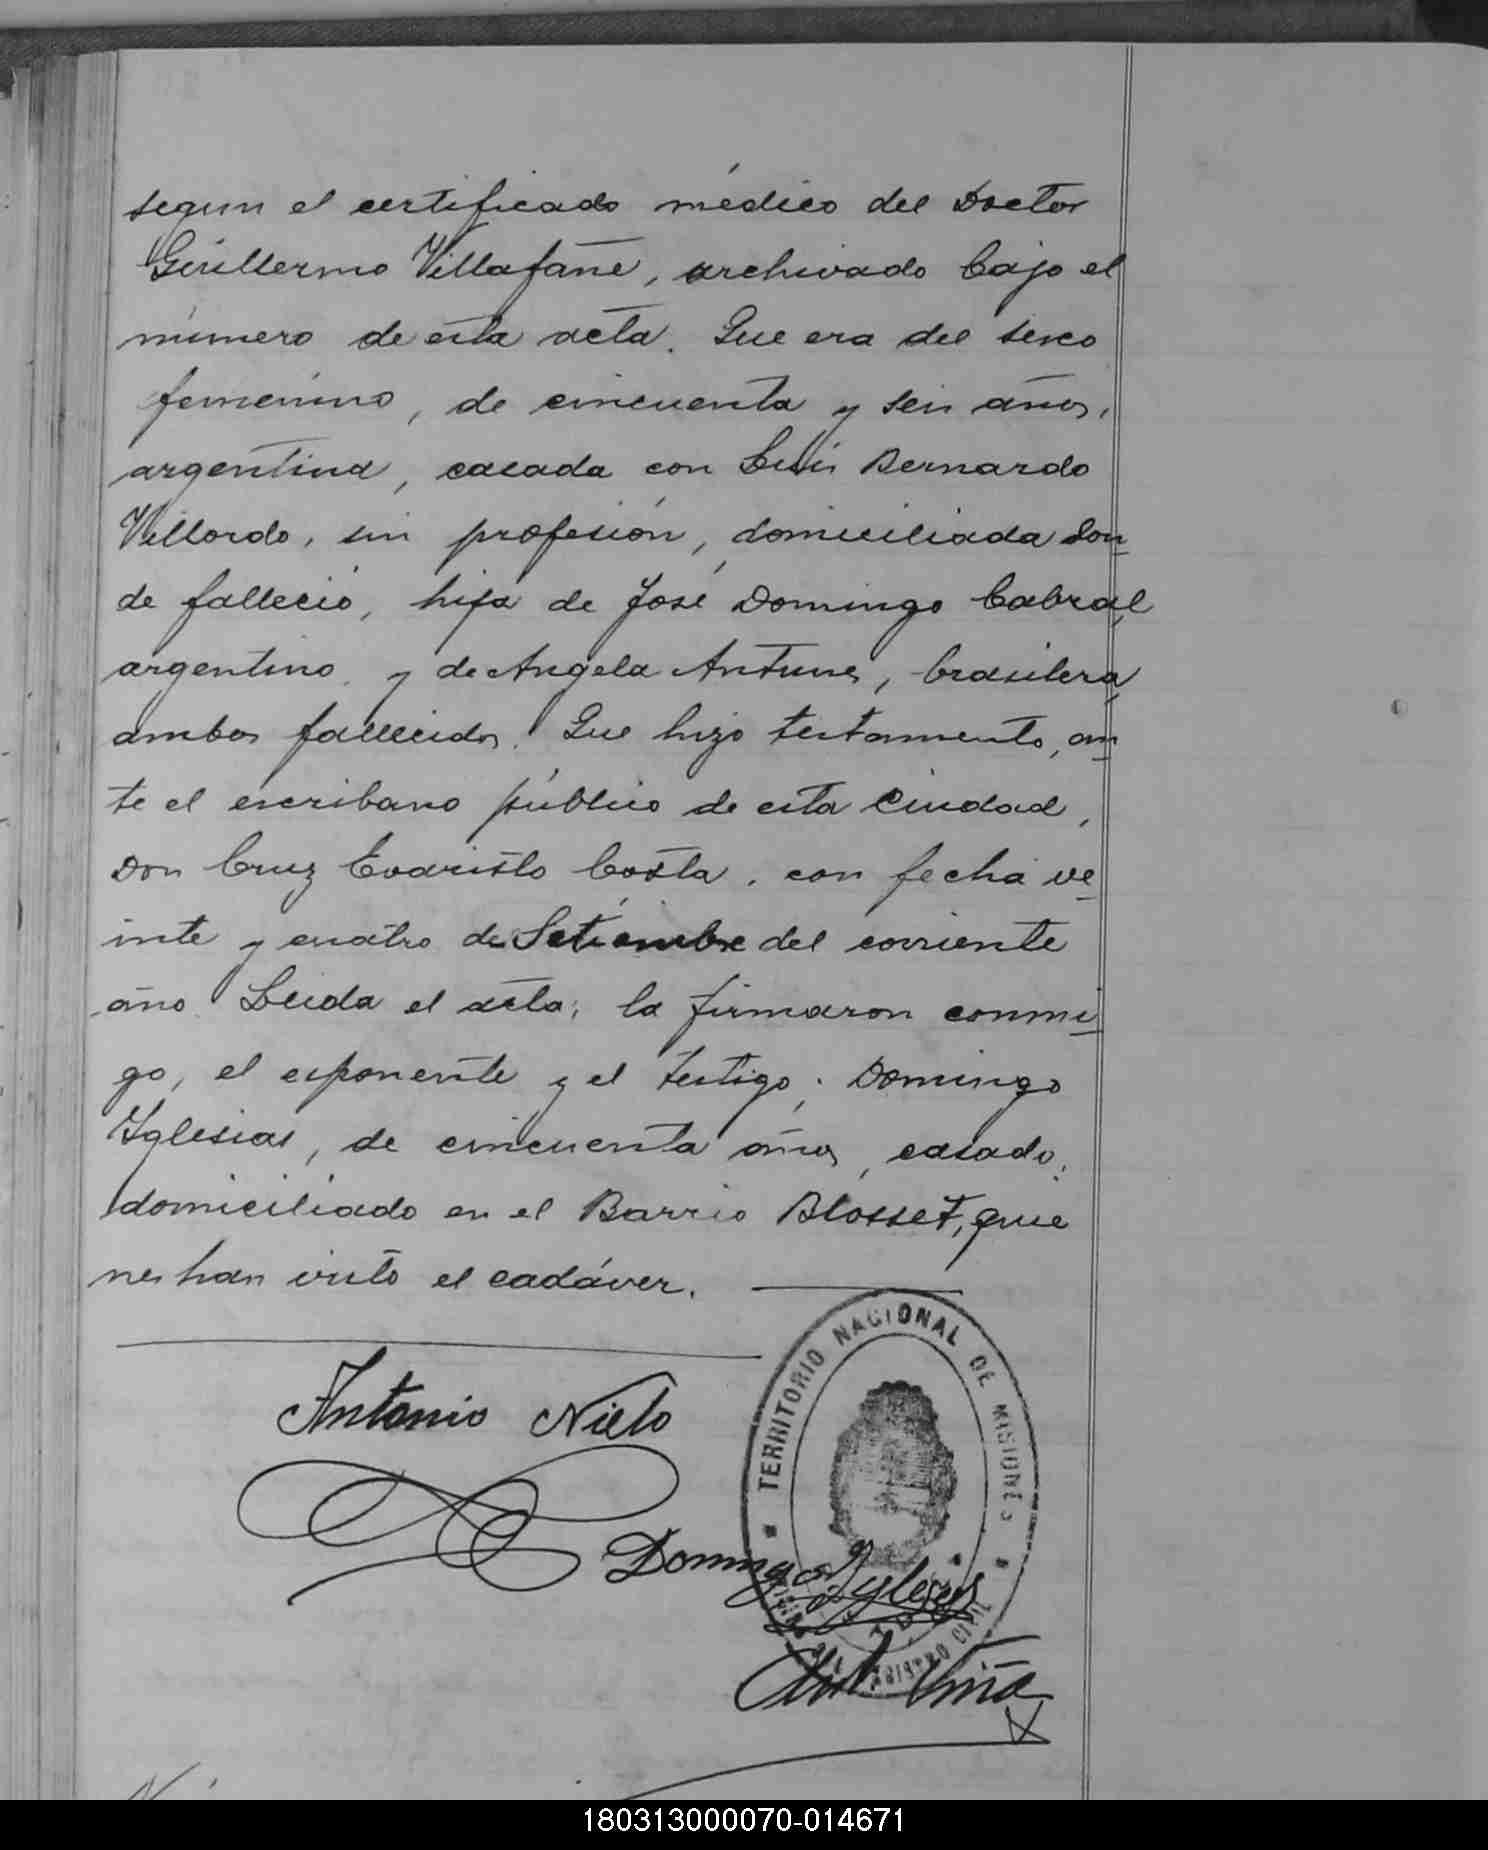 segun el certificado médico del Doctor
Guillermo Villafañe, archivado bajo el
número de esta acta. Que era del sexo
femenino, de cincuenta y seis años,
argentina, casada con Luis Bernardo
Villordo, sin profesión, domiciliada don
de falleció, hija de José Domingo Cabral,
argentino y de Angela Antunes, brasilera,
ambos fallecidos. Que hizo testamento, an
te el escribano público de esta Ciudad,
Don Cruz Evaristo Costa, con fecha ve
inte y cuatro de Setiembre del corriente
año. Leida el acta, la firmaron conmi
go, el exponente y el testigo, Domingo
Iglesias, de cincuenta años, casado,
domiciliado en el Barrio Blosset, quie
nes han visto el cadáver.
Antonio Nieto
TERRITORIO NACIONAL DE MISIONES
Domingo Yglesias
REGISTRO CIVIL
Viña
180313000070-014671